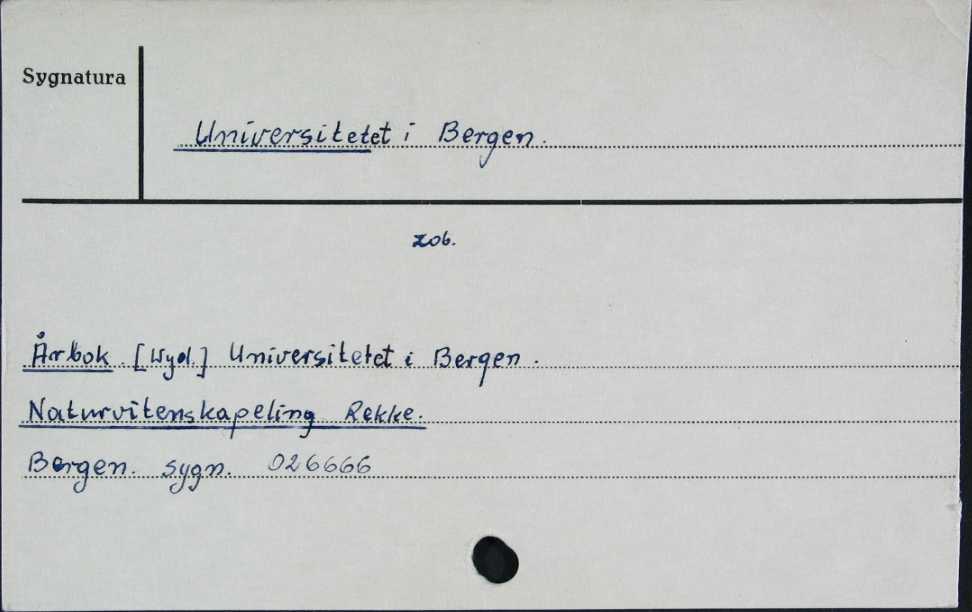 Sygnatura
Universitetet i Bergen.
zob.
Årbok. [Wyd.] Universitetet i Bergen.
Naturvitenskapeling Rekke.
Bergen. sygn. 026666